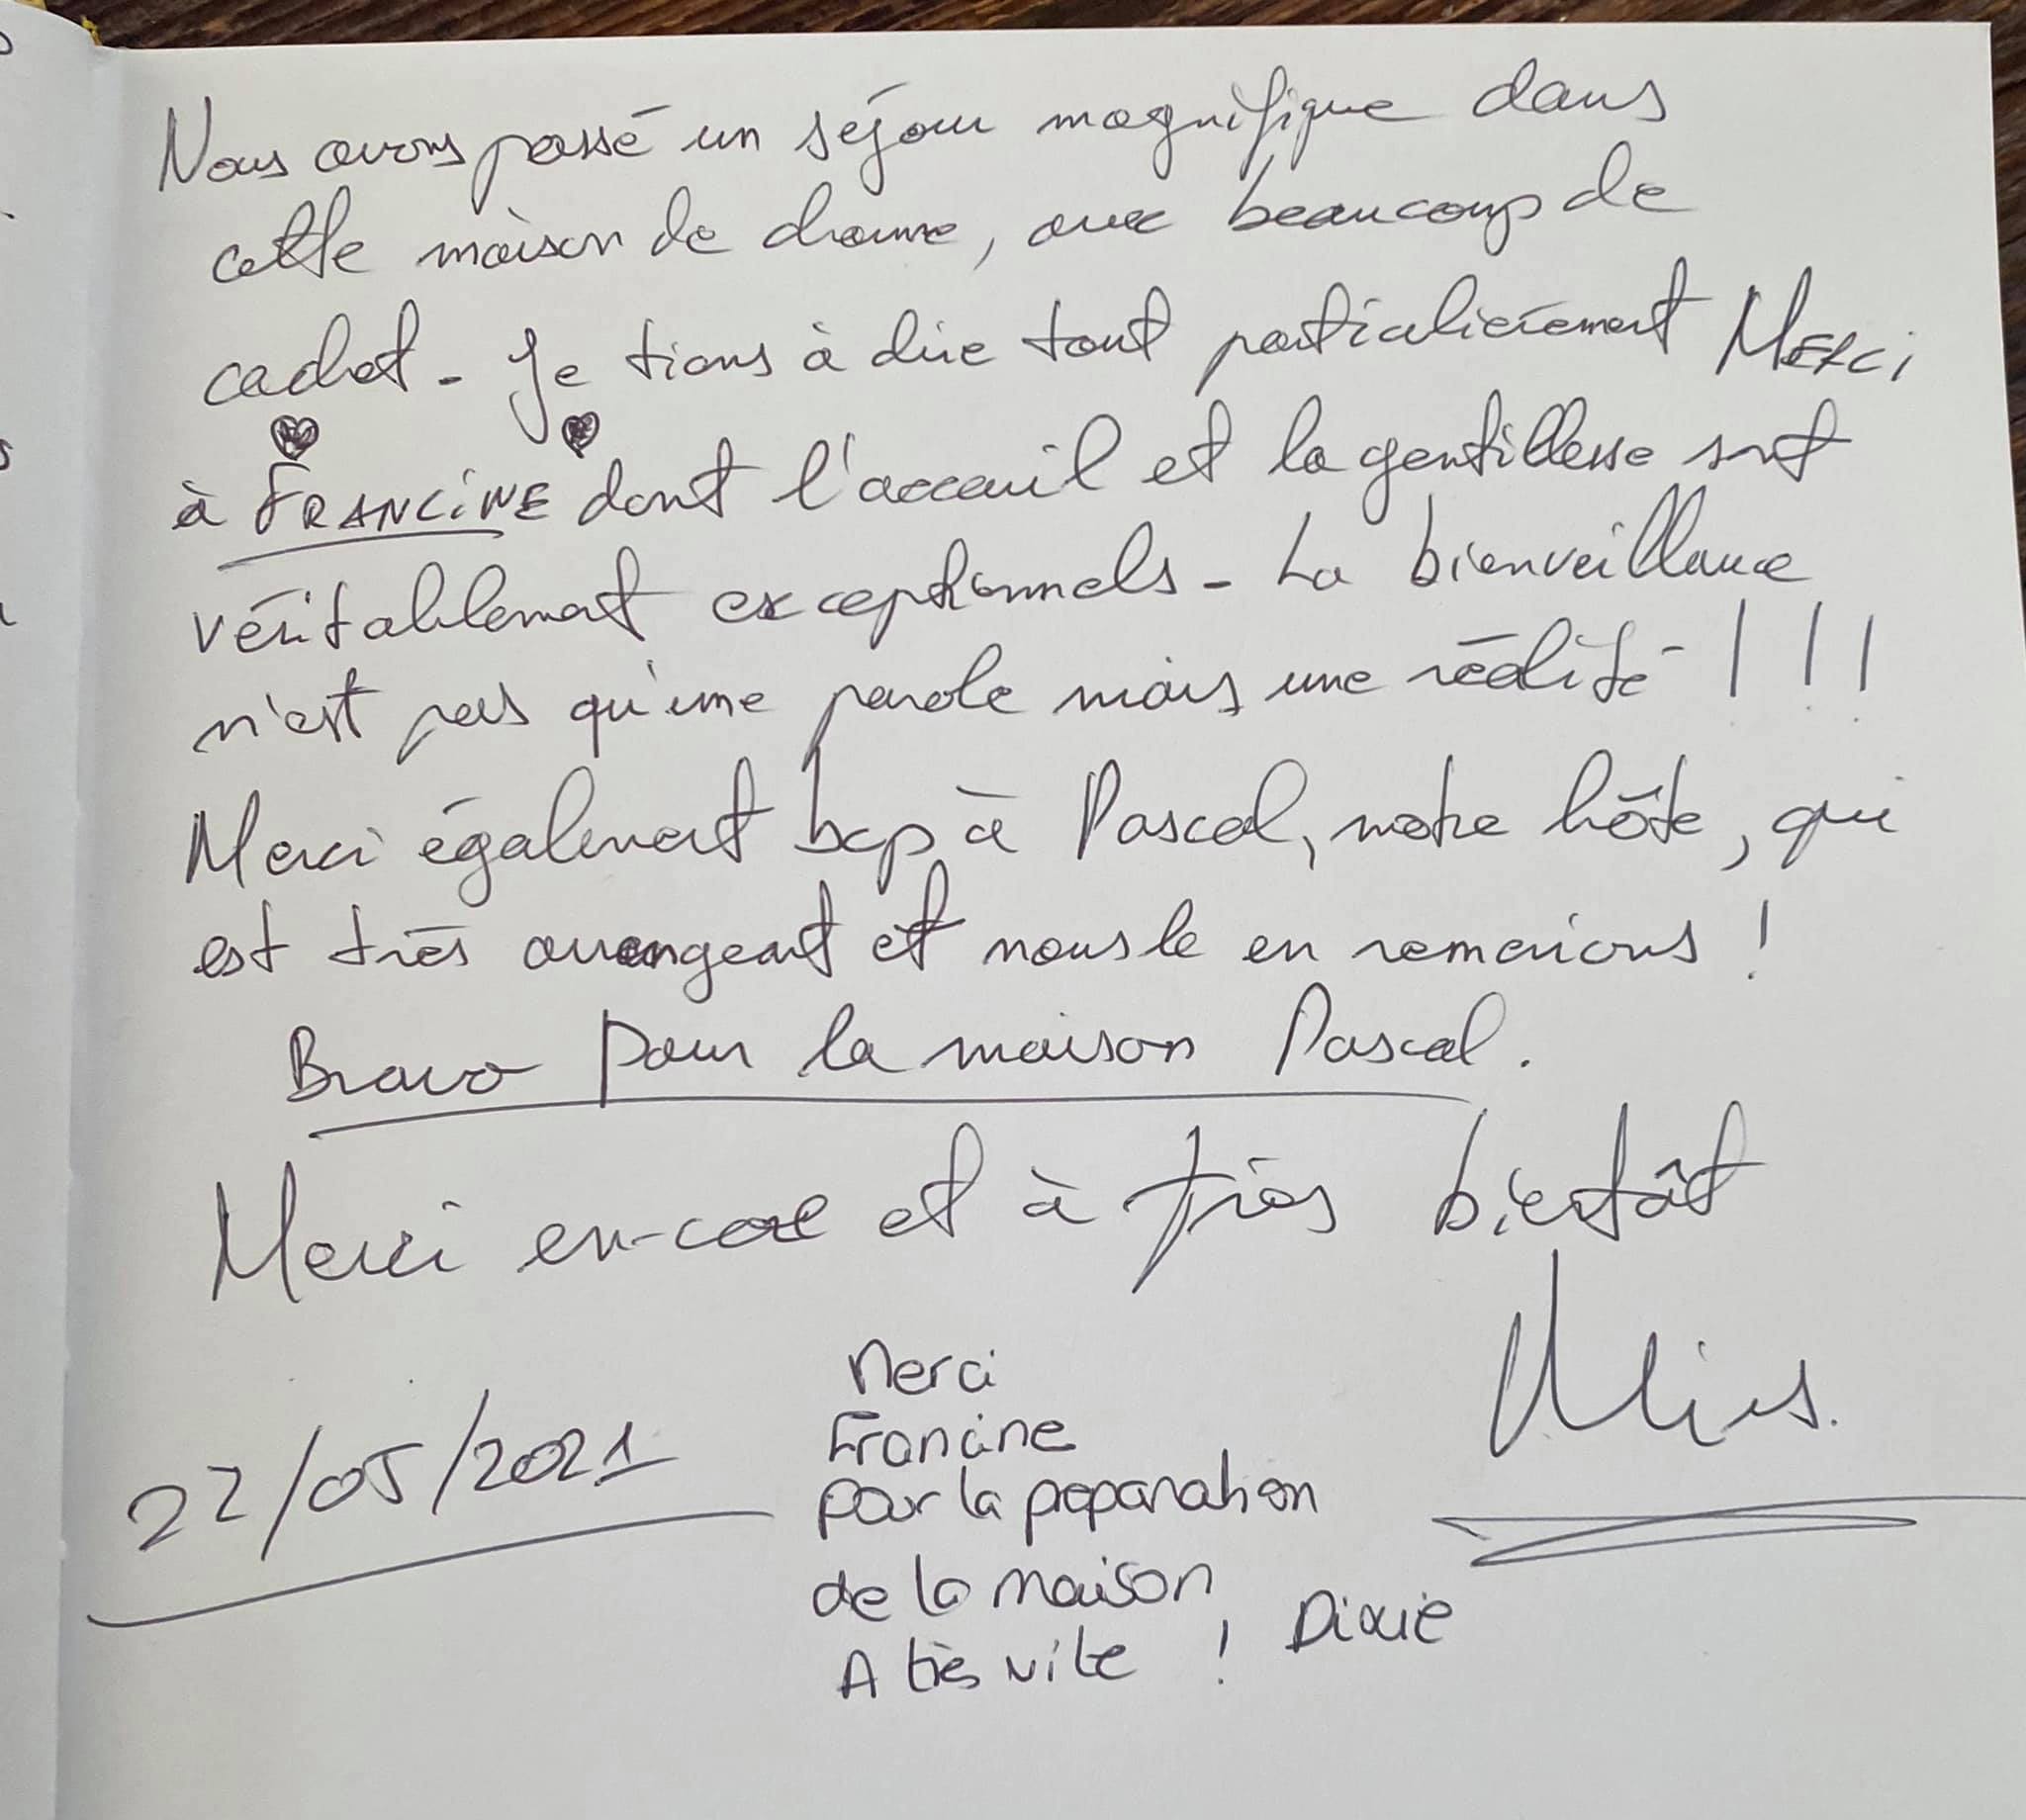 Nous avons passé un séjour magnifique dans
cette maison de charme, avec beaucoup de
cachet - Je tiens à dire tout particulièrement MERCI
à FRANCINE dont l'accueil et la gentillesse sont
véritablement exceptionnels - La bienveillance
n'est pas qu'une parole mais une réalité !!!
Merci également bcp à Pascal, notre hôte, qui
est très arrangeant et nous le en remercions !
Bravo pour la maison Pascal.
Merci en-core et à très bientôt
22/05/2021
Merci
Francine
pour la préparation
de la maison
A très vite !